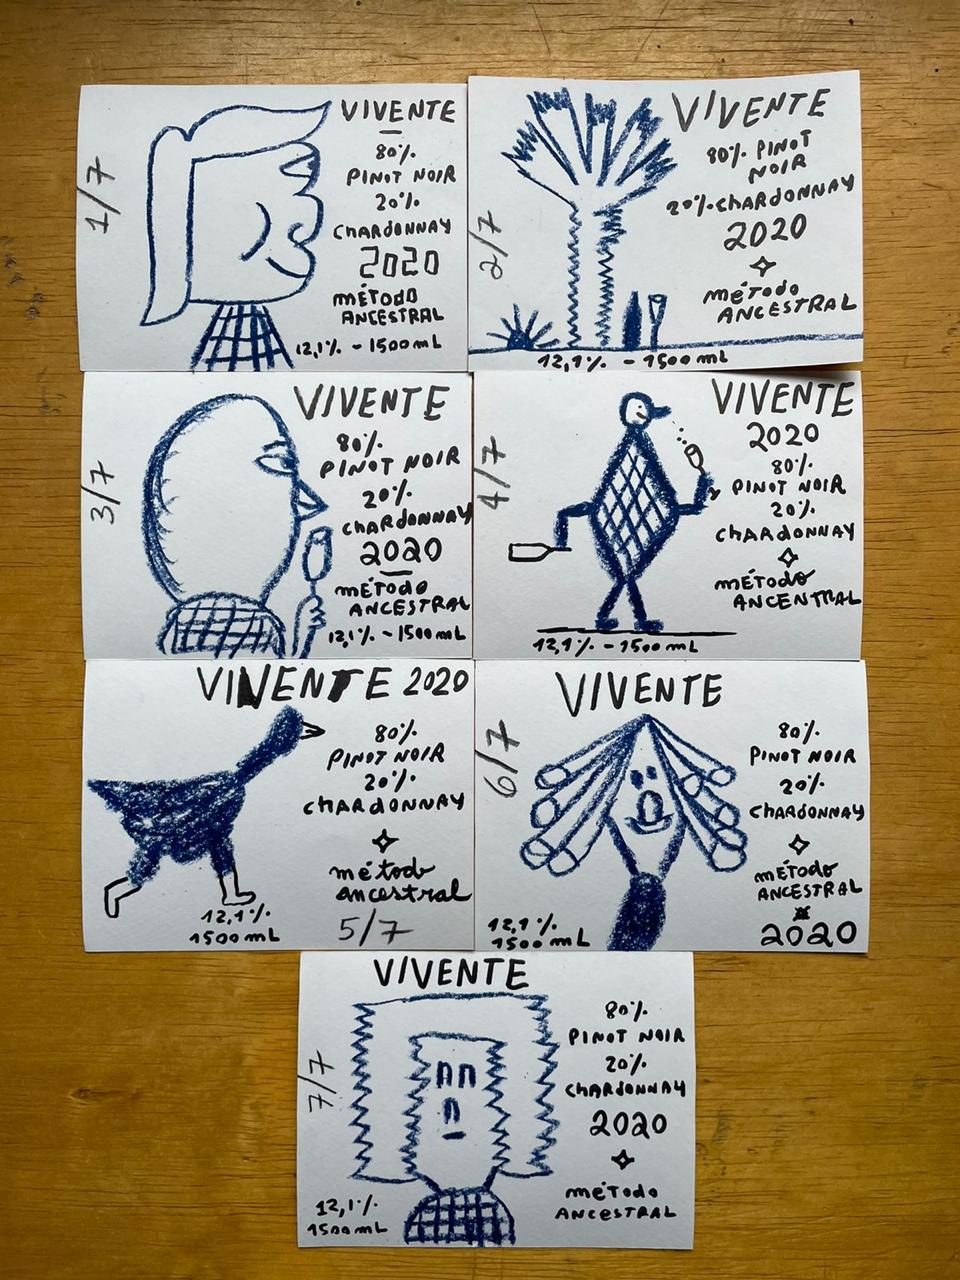 1/7
VIVENTE
80%
PINOT NOIR
20%
CHARDONNAY
2020
MÉTODO
ANCESTRAL
12,1% - 1500mL
2/7
VIVENTE
80% PINOT
NOIR
20% CHARDONNAY
2020
MÉTODO
ANCESTRAL
12,1% - 1500mL
3/7
VIVENTE
80%
PINOT NOIR
20%
CHARDONNAY
2020
MÉTODO
ANCESTRAL
12,1% - 1500mL
4/7
VIVENTE
2020
80%
PINOT NOIR
20%
CHARDONNAY
MÉTODO
ANCENTRAL
12,1% - 1500mL
VIVENTE 2020
80%
PINOT NOIR
20%
CHARDONNAY
método
ancestral
12,1%
1500mL
5/7
6/7
VIVENTE
80%
PINOT NOIR
20%
CHARDONNAY
MÉTODO
ANCESTRAL
2020
12,1%
1500mL
7/7
VIVENTE
80%
PINOT NOIR
20%
CHARDONNAY
2020
MÉTODO
ANCESTRAL
12,1%
1500mL